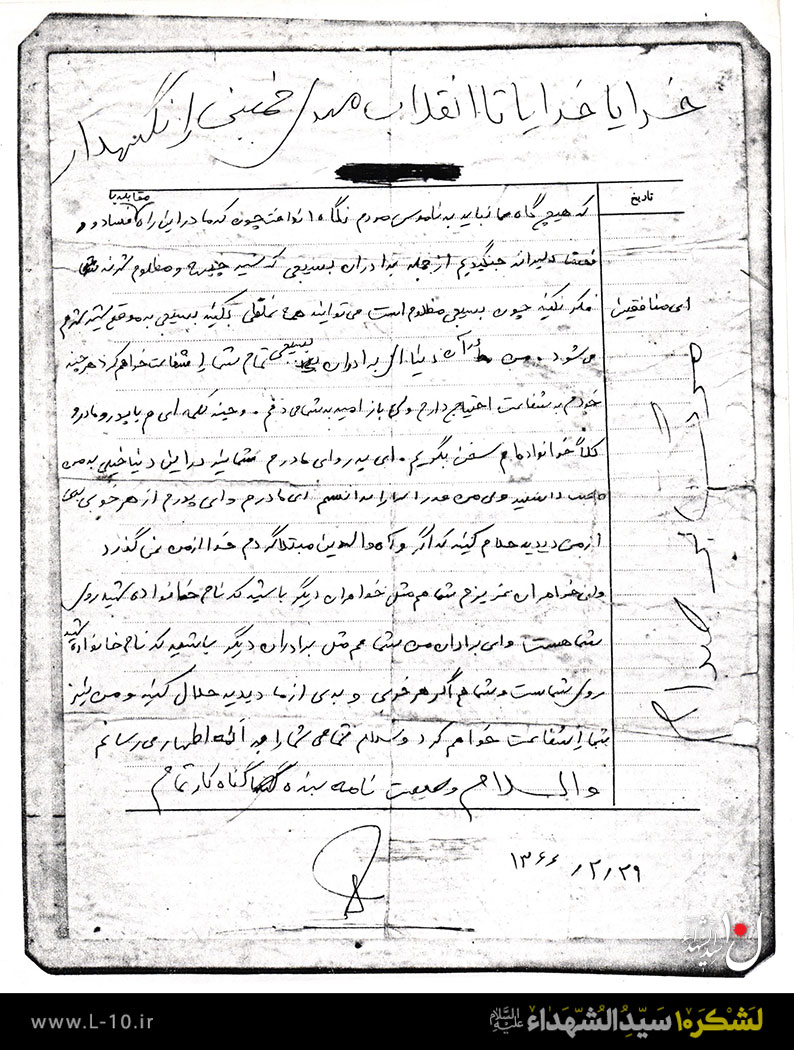 خدایا خدایا تا انقلاب مهدی خمینی را نگهدار
تاریخ
که هیچ گاه ما نباید به ناموس مردم نگاه چون که ما در این راه مقابله با فساد و
دلیرانه جنگیدیم از جمله برادران بسیجی که شهید و مظلوم شدند
ای منافقین
فکر نکنید چون بسیجی مظلوم است می‌توانید هر غلطی بکنید بسیجی به موقع
می‌شود. من در آن دنیا ای برادران بسیجی تمام شما را شفاعت خواهم کرد هر چند
خودم به شفاعت احتیاج دارم ولی باز امید به شما می‌دهم. و چند کلمه ای هم با پدر و مادر و
کلاً خانواده‌ام سخن بگویم. ای پدر و ای مادرم شما در این دنیا خیلی به من
داشتید ولی من قدر شما را ندانستم ای مادرم و ای پدرم از هر خوبی بدی
از من دیدید حلالم کنید که اگر و آه والدین مبتلا گردم خدا از من نمی گذرد
وای خواهران عزیزم شما هم مثل خواهران دیگر باشید که نام خانواده شهید روی
شما هست وای برادران من شما هم مثل برادران دیگر باشید که نام خانواده شهید
روی شماست و شما هم اگر هر خوبی و بدی از ما دیدید حلال کنید و من نیز
شما را شفاعت خواهم کرد و سلام تمامی شما را به ائمه اطهار می رسانم
والسلام وصیت نامه بنده گناه کار تمام
مرگ بر صدام
۱۳۶۶/۲/۲۹
www.L-10.ir
لشکر۱۰ سیّدالشهداء علیه السّلام